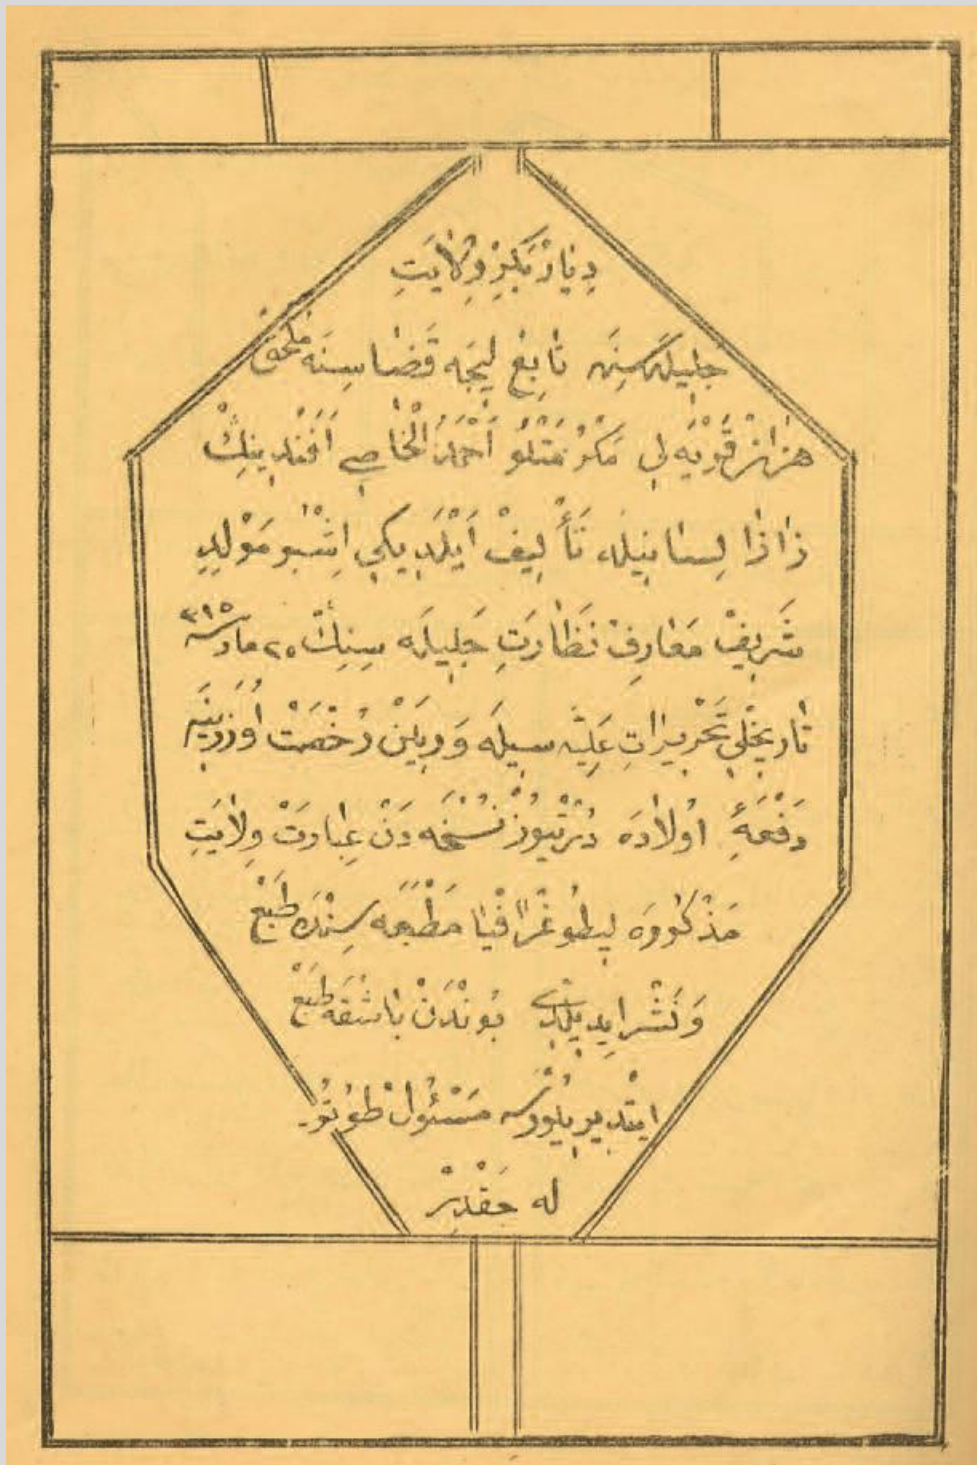 دِيَارْبَكِرْ وِلَايَتِ
جَلِيلَه سِنَه تَابِعْ لِيجَه قَضَا سِنَه مُلْحَقْ
هَزَانْ قَرْيَه لِي مَكْرُمَتْلُو أَحْمَدُ الْخَاصِي أَفَنْدِينِكْ
زَازَا لِسَانِيلَه تَأْلِيفْ أَيْلَدِيكِي اِشْبُو مَوْلِدِ
شَرِيفْ مَعَارِفْ نَظَارَتِ جَلِيلَه سِنِكْ ٢٥ مارت سنه ٣١٥
تَارِيخْلِي تَحْرِيرَاتِ عَلِيَّه سِيلَه وَرِيلَنْ رُخْصَتْ أُوزَرِينَه
دَفْعَۀِ اُولَادَه دُرْتْيُوزْ نُسْخَه دَنْ عِبَارَتْ وِلَايَتِ
مَذْكُورَه لِيطُوغْرَافْيَا مَطْبَعَه سِنْدَه طَبْعْ
وَنَشْر اِيدِيلْدِي بُونْدَنْ بَاشْقَه طَبْعْ
اِيتْدِيرِيلُورْسَه مَسْئُولْ طُوتُو
لَه جَقْدِرْ